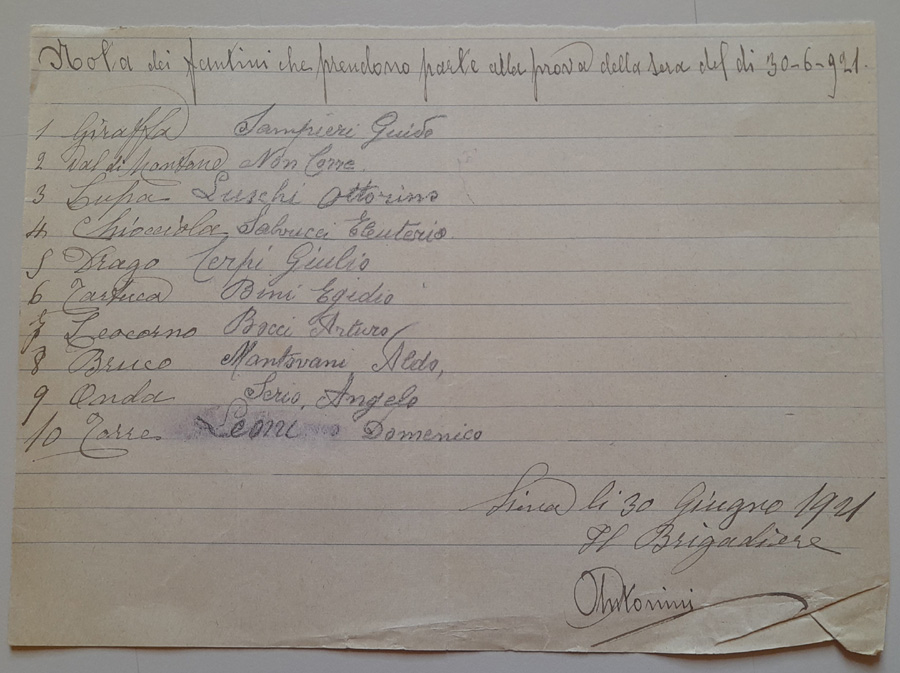 Nota dei fantini che prendono parte alla prova della sera del di 30-6-921.
1 Giraffa Sampieri Guido
2 Val di Montone Non Corre
3 Lupa Luschi Ottorino
4 Chiocciola Salvucci Eleuterio
5 Drago Terpi Giulio
6 Tartuca Bini Egidio
7 Leocorno Bocci Arturo
8 Bruco Mantovani Aldo,
9 Onda Serio, Angelo
10 Torre Leoni Domenico
Siena li 30 Giugno 1921
Il Brigadiere
Antonini